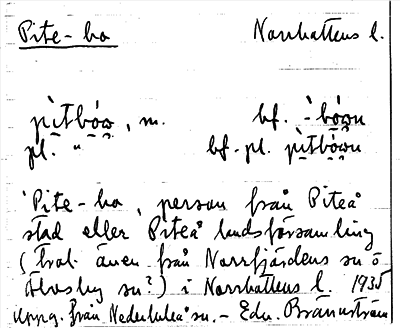 Pite-bo Norrbottens l.
pìtbów, m. bf. -bówn
pl. " bf. pl. pìtbówn
'Pite-bo, person från Piteå
stad eller Piteå landsförsamling
(trol. även från Norrfjärdens sn o
Älvsby sn?) i Norrbottens l. 1935
Uppg. från Nederluleå sn. - Edv. Brännström